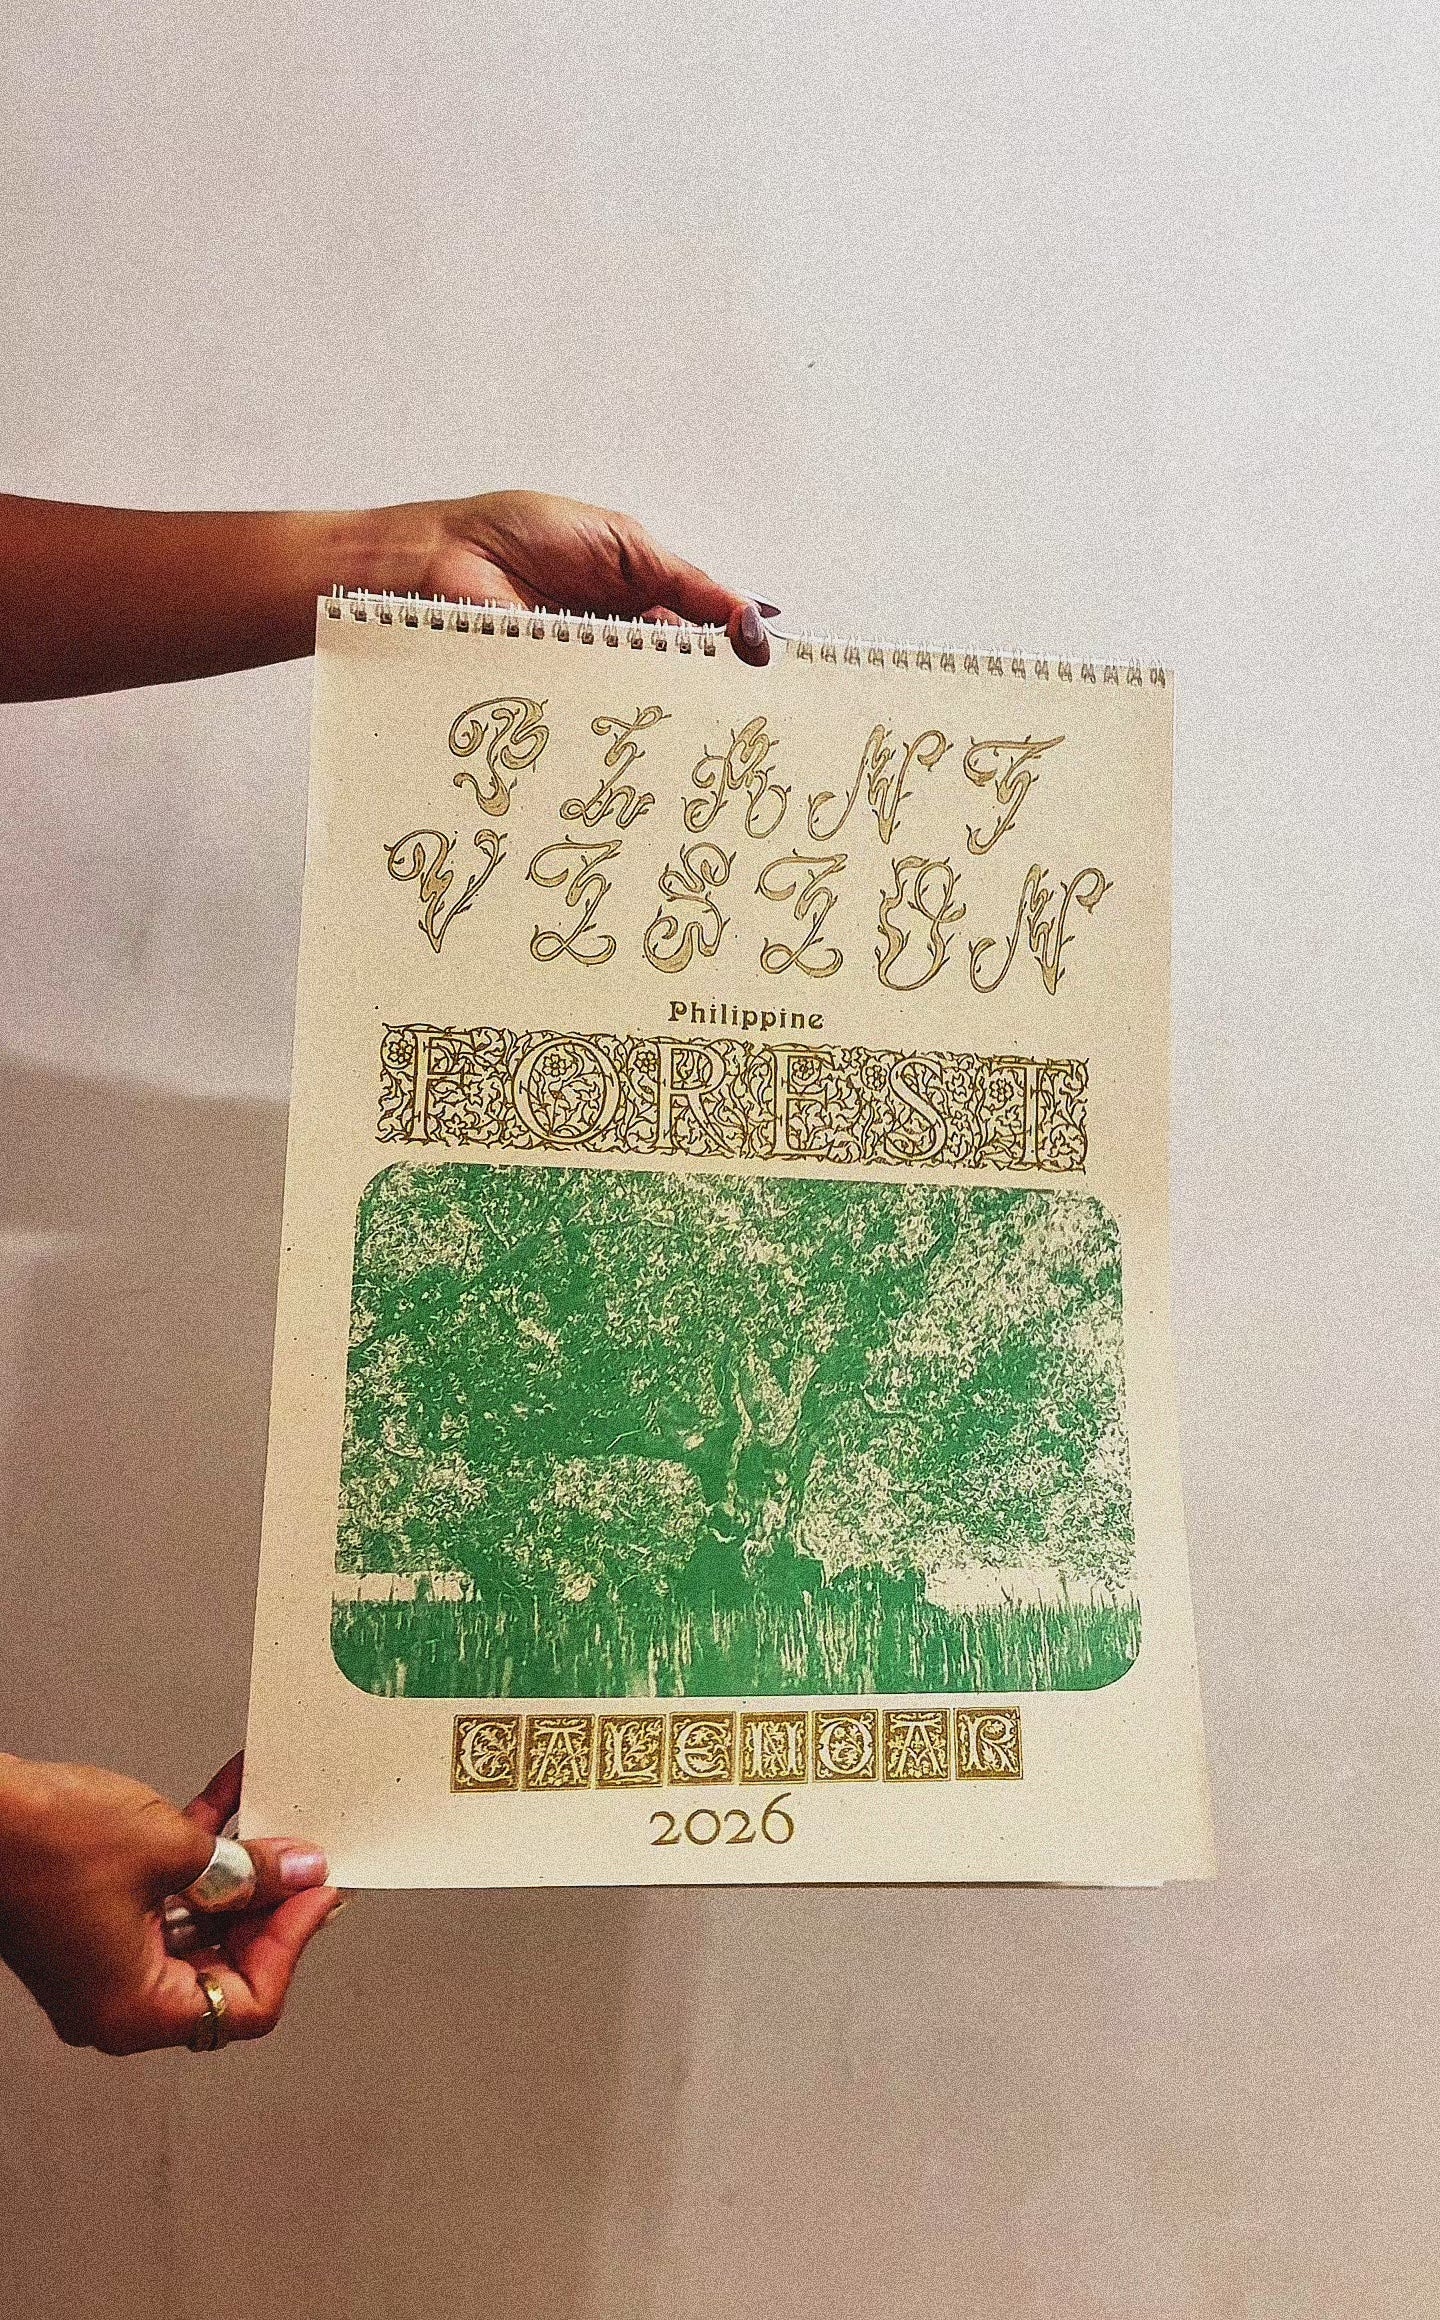 PLANT
VISION
Philippine
FOREST
CALENDAR
2026